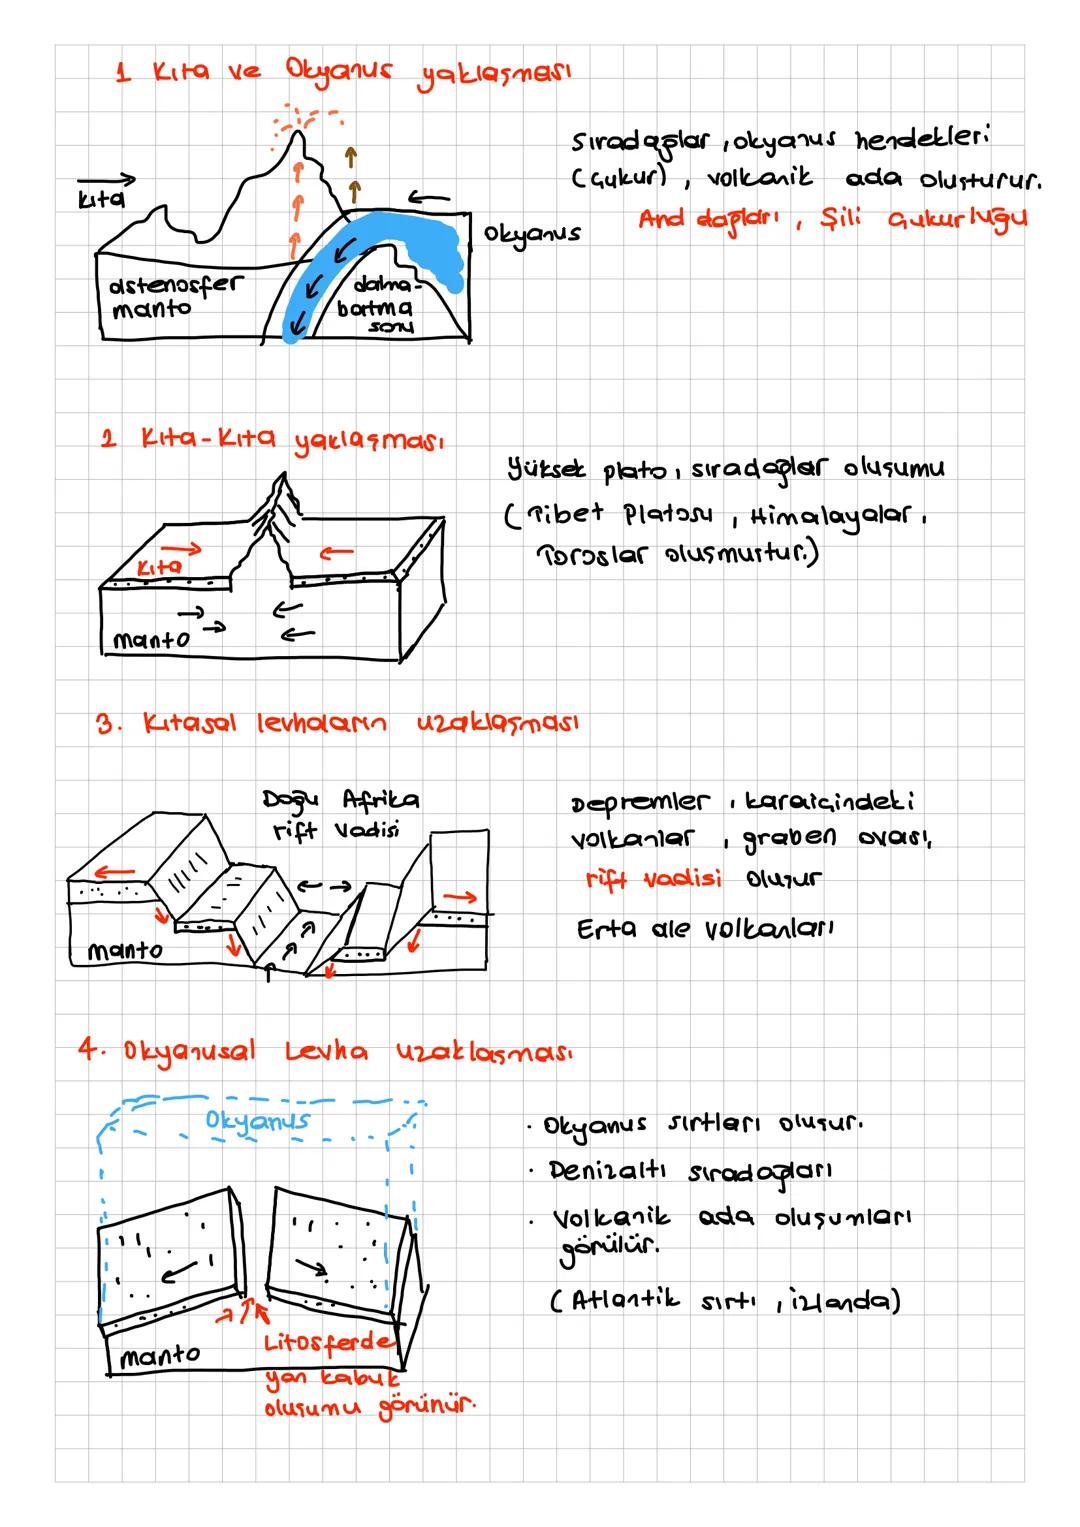 1 Kıta ve Okyanus yaklaşması
Sıradağlar, okyanus hendekleri
(Çukur), volkanik ada oluşturur.
And dağları, Şili Çukurluğu
kıta
Okyanus
astenosfer
manto
dalma-
batma
sonu
2 Kıta-Kıta yaklaşması
Yüksek plato, sıradağlar oluşumu
(Tibet Platosu, Himalayalar,
Toroslar oluşmuştur.)
kıta
manto
3. Kıtasal levhaların uzaklaşması
Doğu Afrika
rift vadisi
Depremler, karaiçindeki
volkanlar, graben ovası,
rift vadisi oluşur
Erta ale volkanları
manto
4. Okyanusal Levha uzaklaşması
Okyanus
· Okyanus sırtları oluşur.
· Denizaltı sıradağları
· Volkanik ada oluşumları
görülür.
(Atlantik sırtı, izlanda)
manto
Litosferde
yan kabuk
oluşumu görünür.